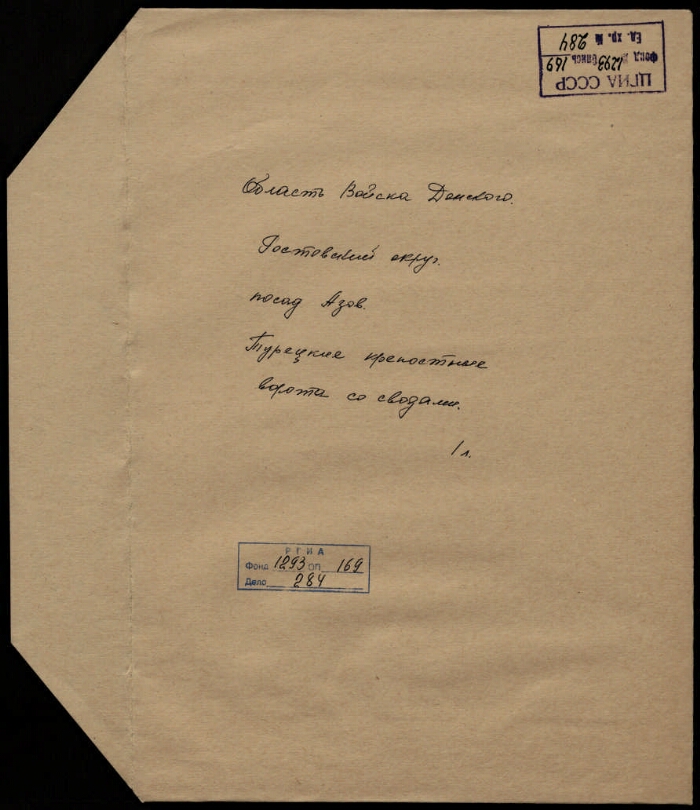 ЦГИА СССР
Фонд № 1293 Опись 169
Ед. хр. № 284
Область Войска Донского.
Ростовский округ.
посад Азов.
Турецкие крепостные
ворота со сводами.
1 л.
РГИА
Фонд 1293 оп 169
Дело 284